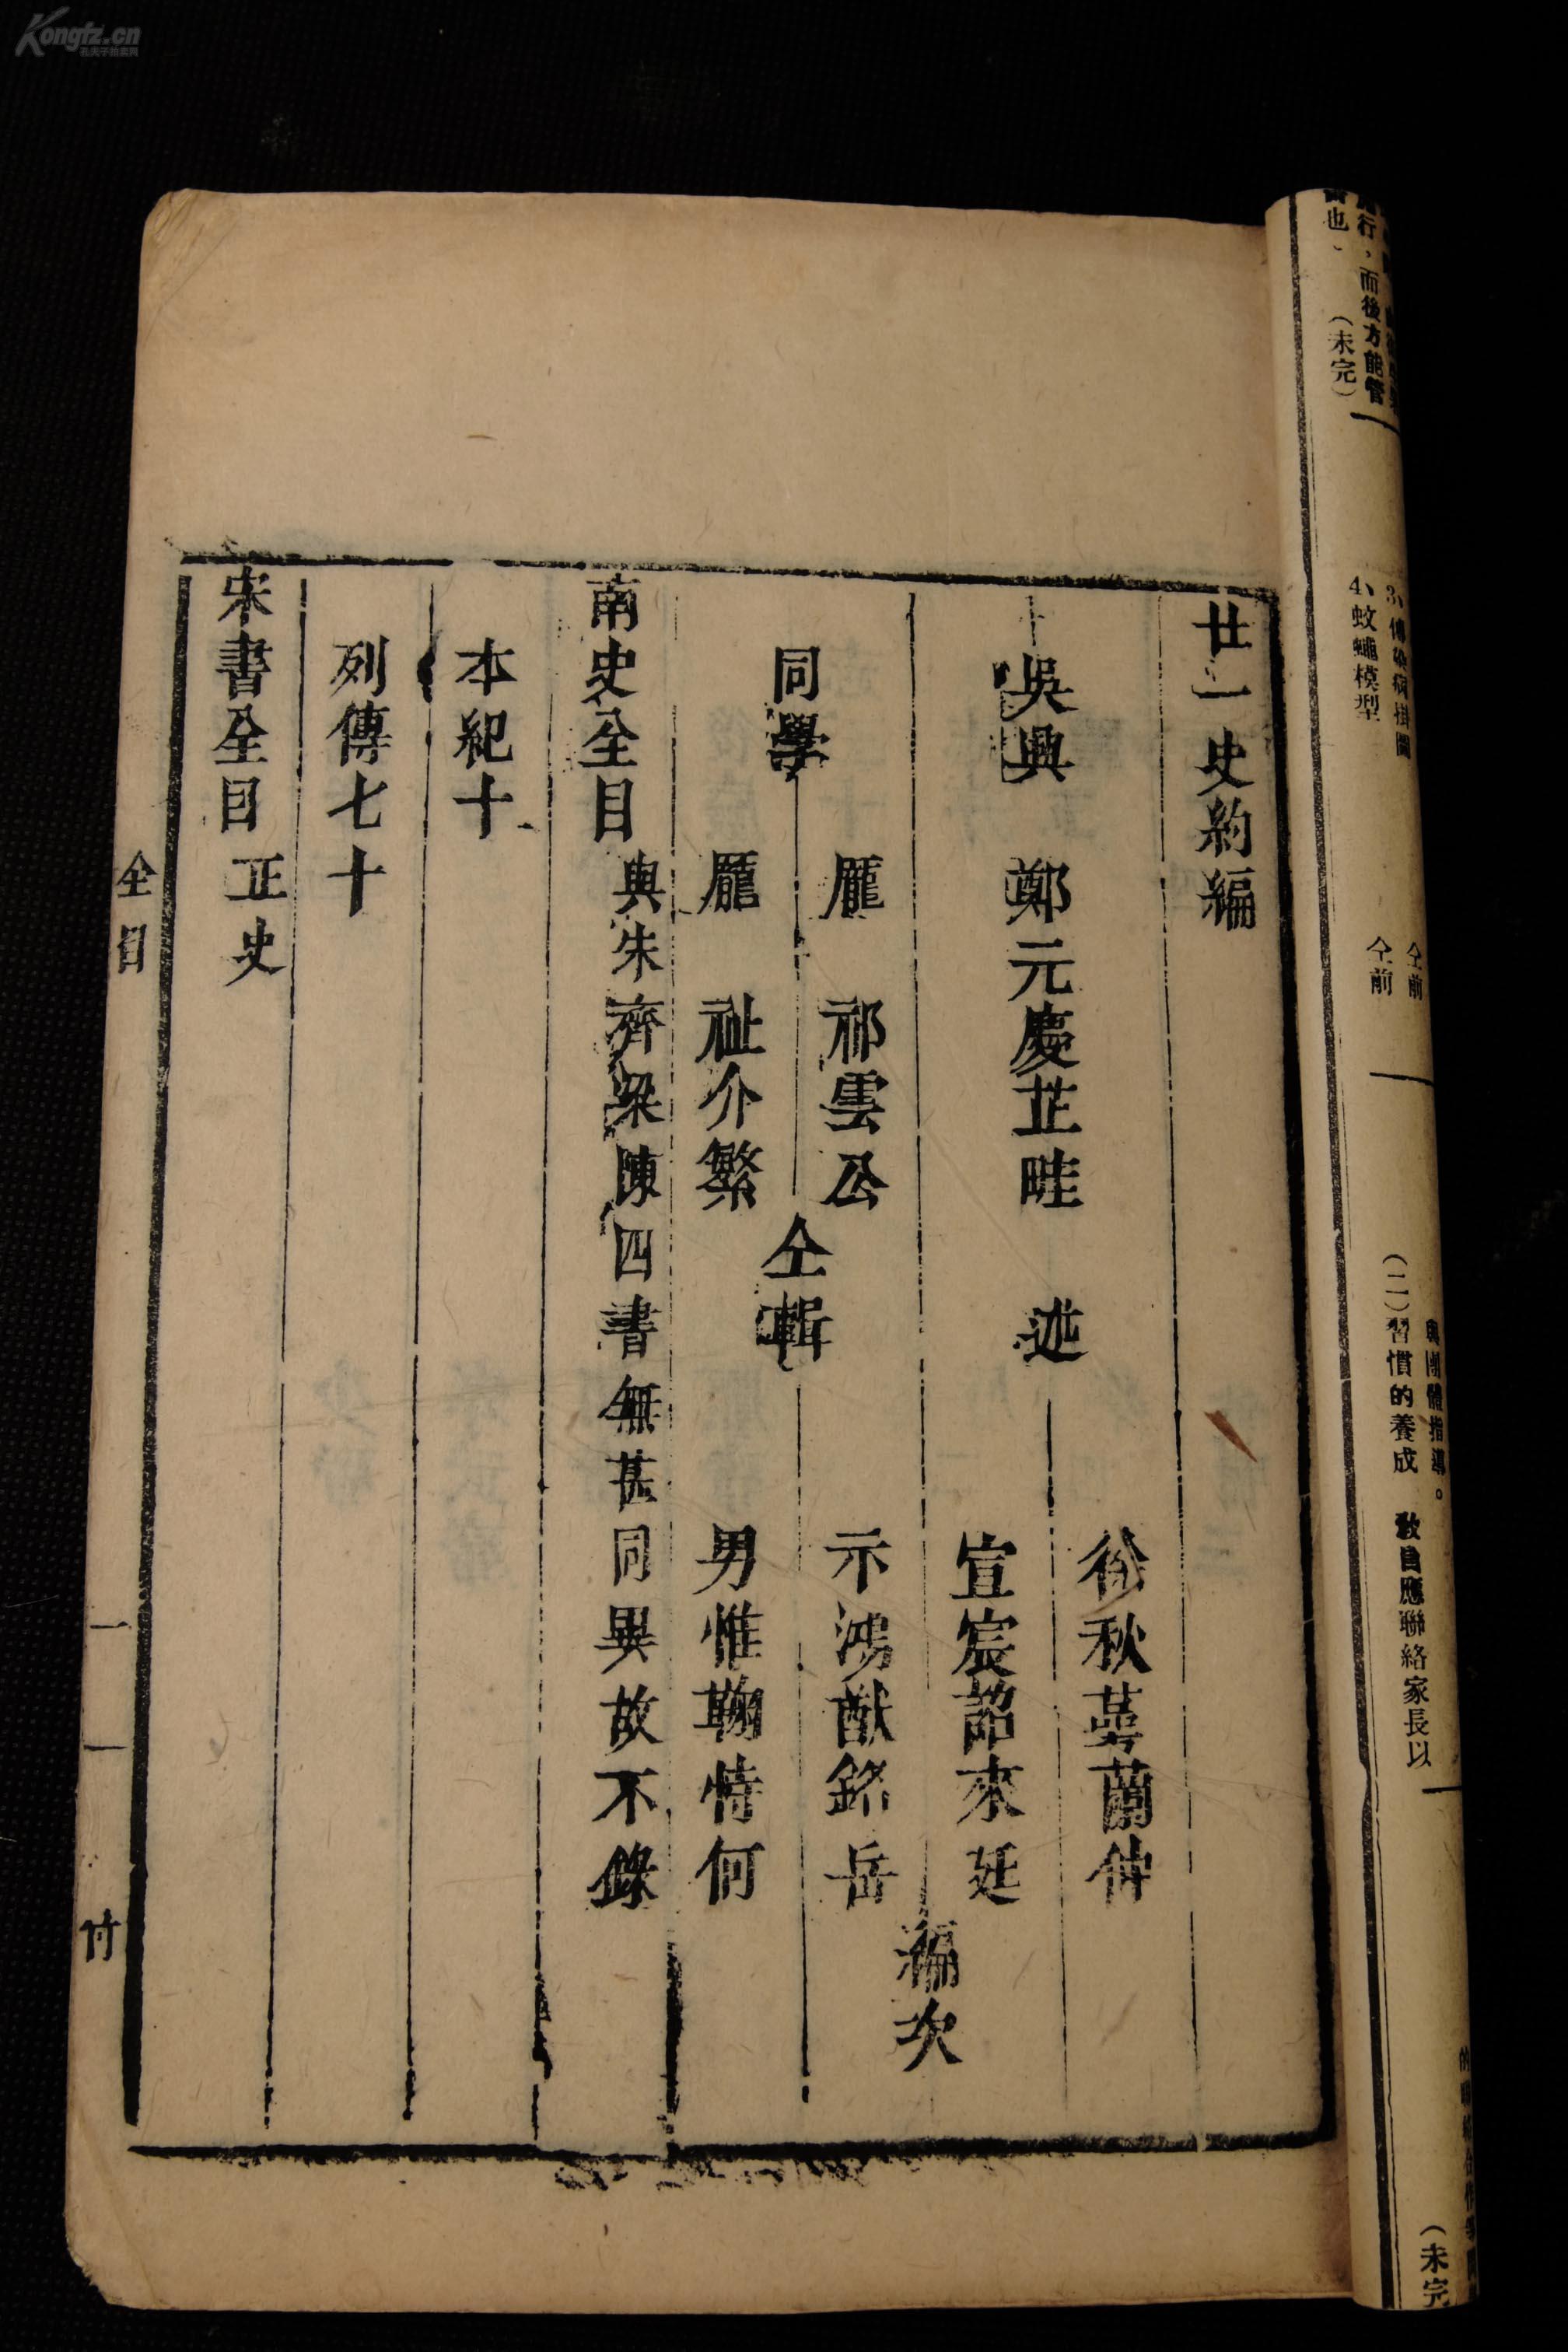 廿一史約編
吳興 鄭元慶芷畦 述
徐秋蕚蘭仲
宣宸詔來廷
編次
同學
龎 祁雲公
龎 祉介繁
仝輯
示鴻猷銘岳
男惟鞠恃何
南史全目 與朱齊梁陳四書無甚同異故不錄
本紀十
列傳七十
宋書全目 正史
全目
一
竹
行，而後方能管
也、
（未完）
4、蚊蠅模型
仝前
仝前
與團體指導。
（二）習慣的養成 教員應聯絡家長以
（未完
Kongfz.cn